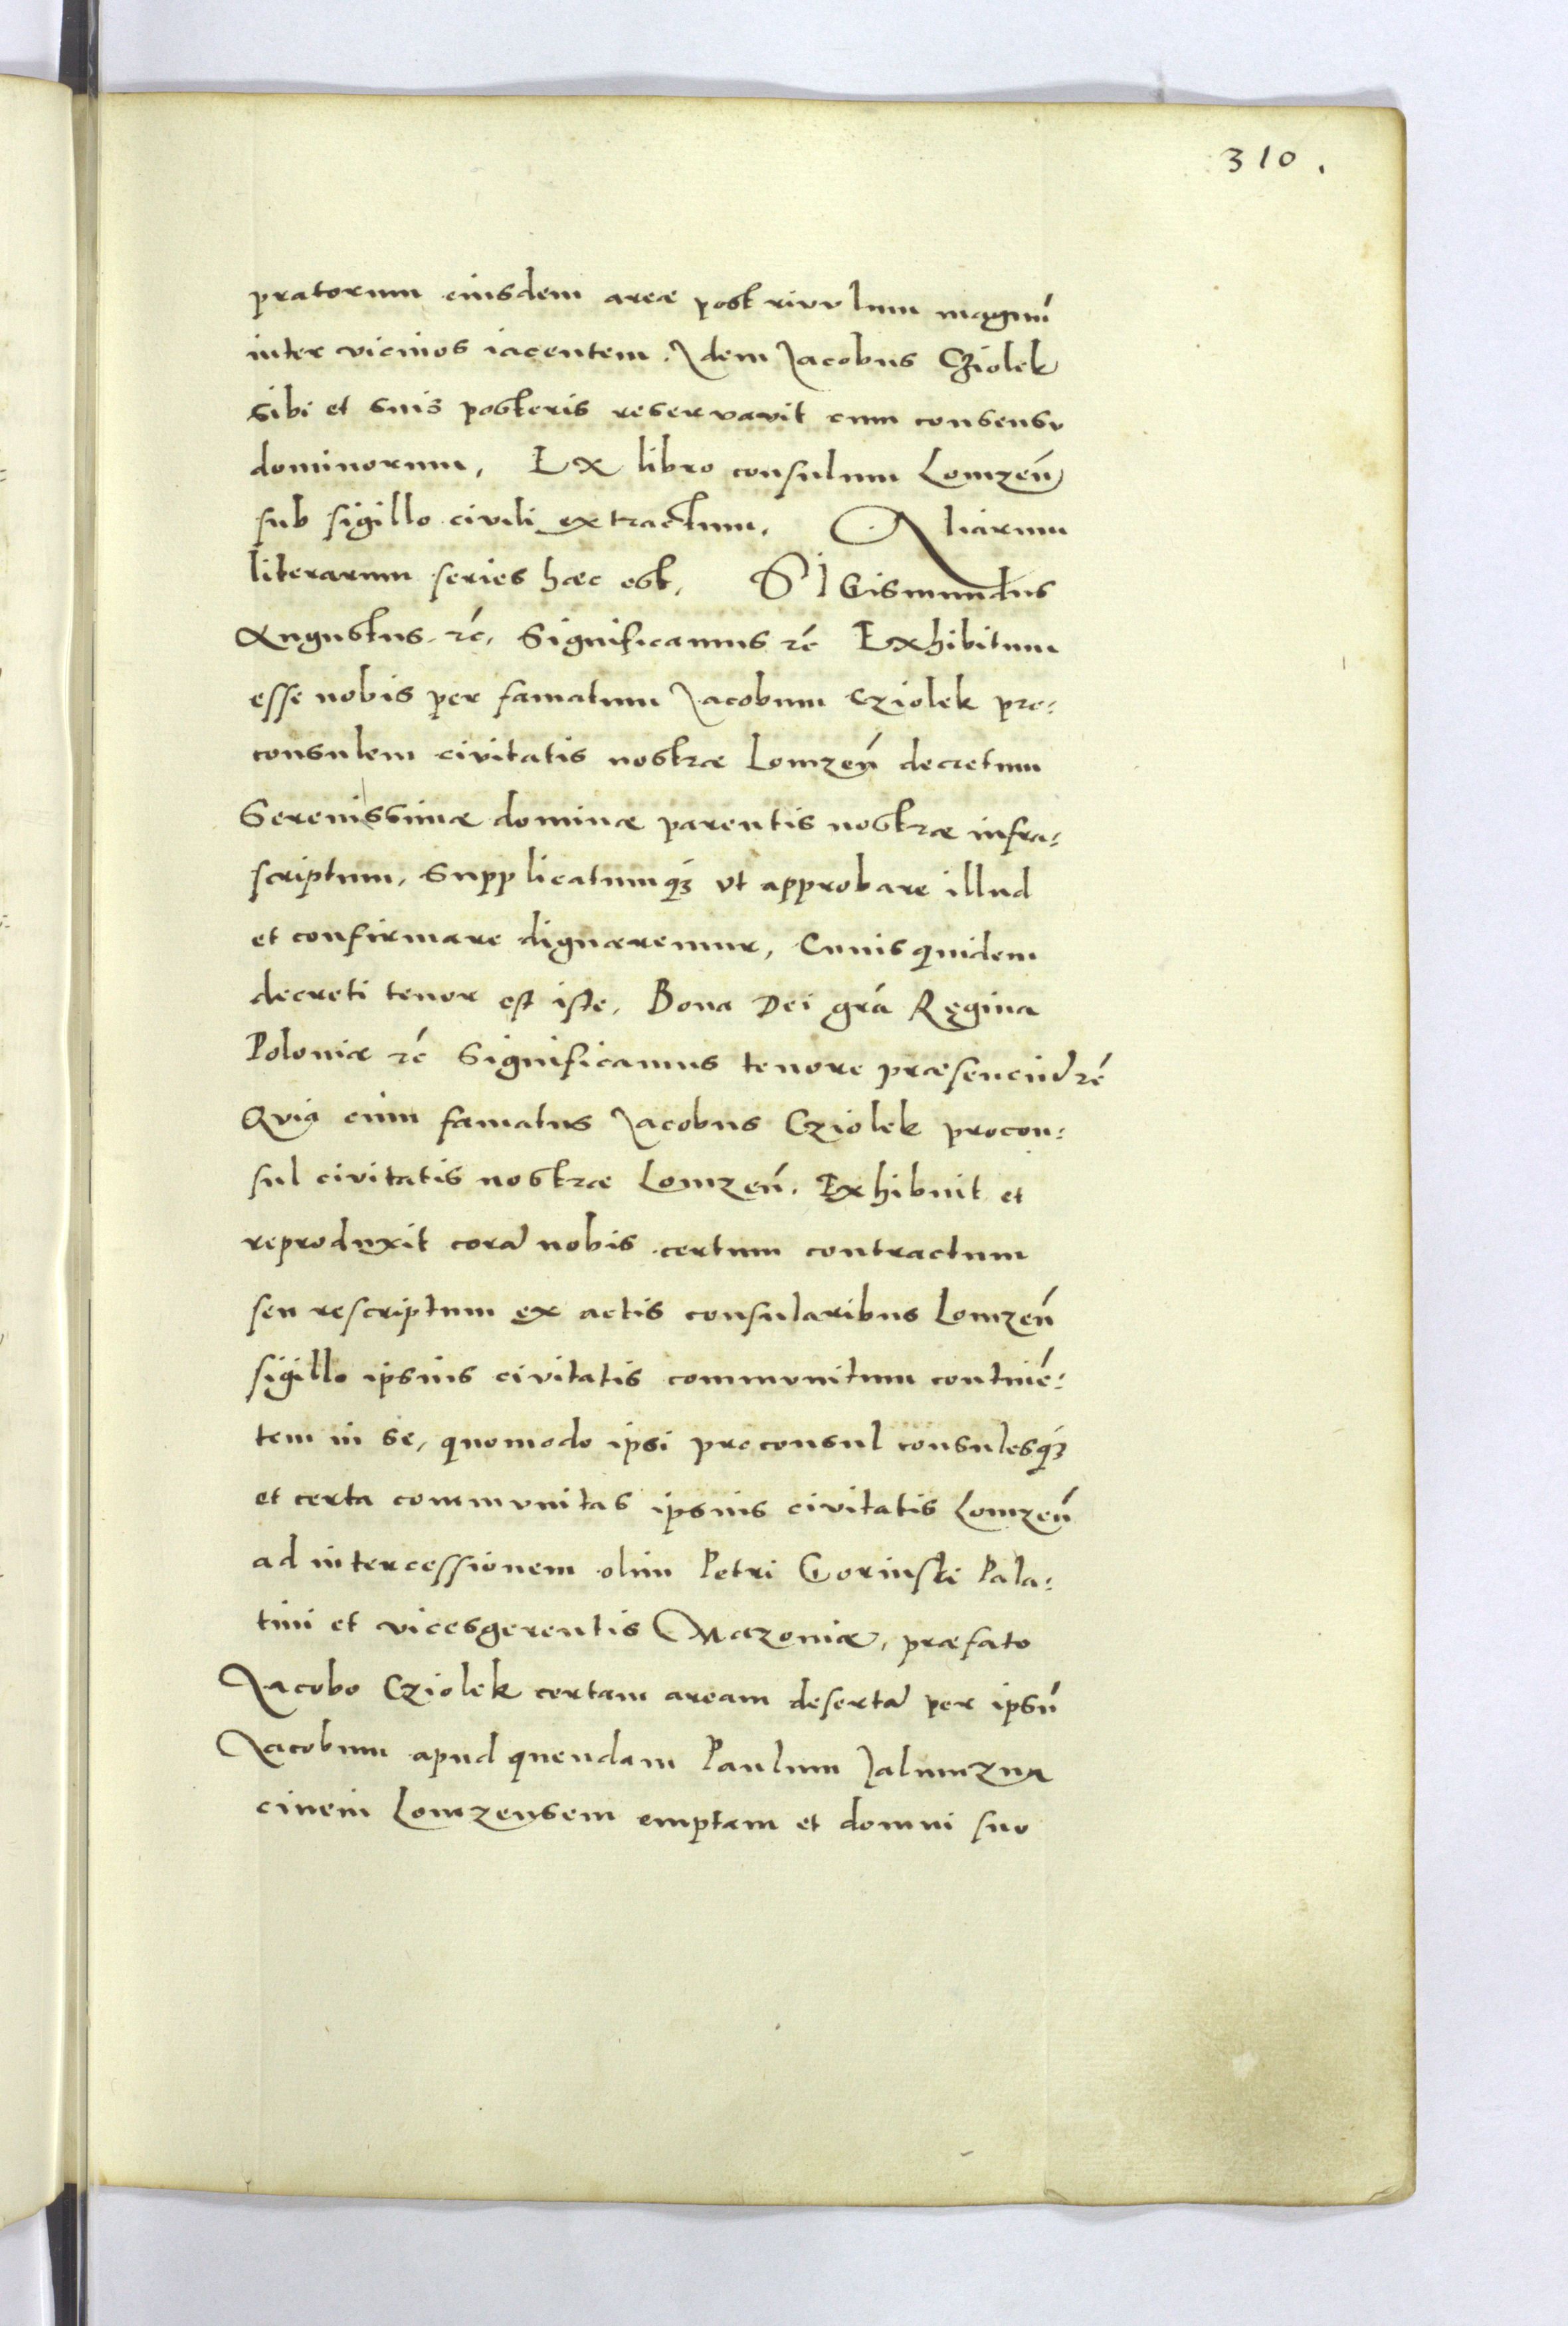 310.
pratorum eiusdem areæ post rivvlum magnũ
inter vicinos iacentem. Idem Jacobus Cziolek
sibi et suis posteris reservavit cum consensv
dominorum, Ex libro consulum Lomzeñ
sub sigillo civili extractum. Aliarum
literarum series hæc est, SIGismundus
Augustus. rc̃, Significamus rc̃ Exhibitum
esse nobis per famatum Jacobum Cziolek pro⸗
consulem civitatis nostræ Lomzeñ decretum
Serenissimæ dominæ parentis nostræ infra⸗
scriptum, Supplicatumqȝ vt approbare illud
et confirmare dignaremur, Cuius quidem
decreti tenor est iste, Bona Dei grã Regina
Poloniæ rc̃ Significamus tenore præsenciũ rc̃
Qvia cum famatus Jacobus Cziolek procon⸗
sul civitatis nostræ Lomzeñ. Exhibuit et
reproduxit corã nobis certum contractum
seu rescriptum ex actis consularibus Lomzeñ
sigillo ipsius civitatis commvnitum continẽ⸗
tem in se, quomodo ipsi proconsul consulesqȝ
et certa commvnitas ipsius civitatis Lomzeñ
ad intercessionem olim Petri Gorinski Pala⸗
tini et vicesgerentis Mazoniæ, præfato
Jacobo Cziolek certam aream desertã per ipsũ
Jacobum apud quendam Paulum Jalmuzna
civem Lomzensem emptam et domui suo